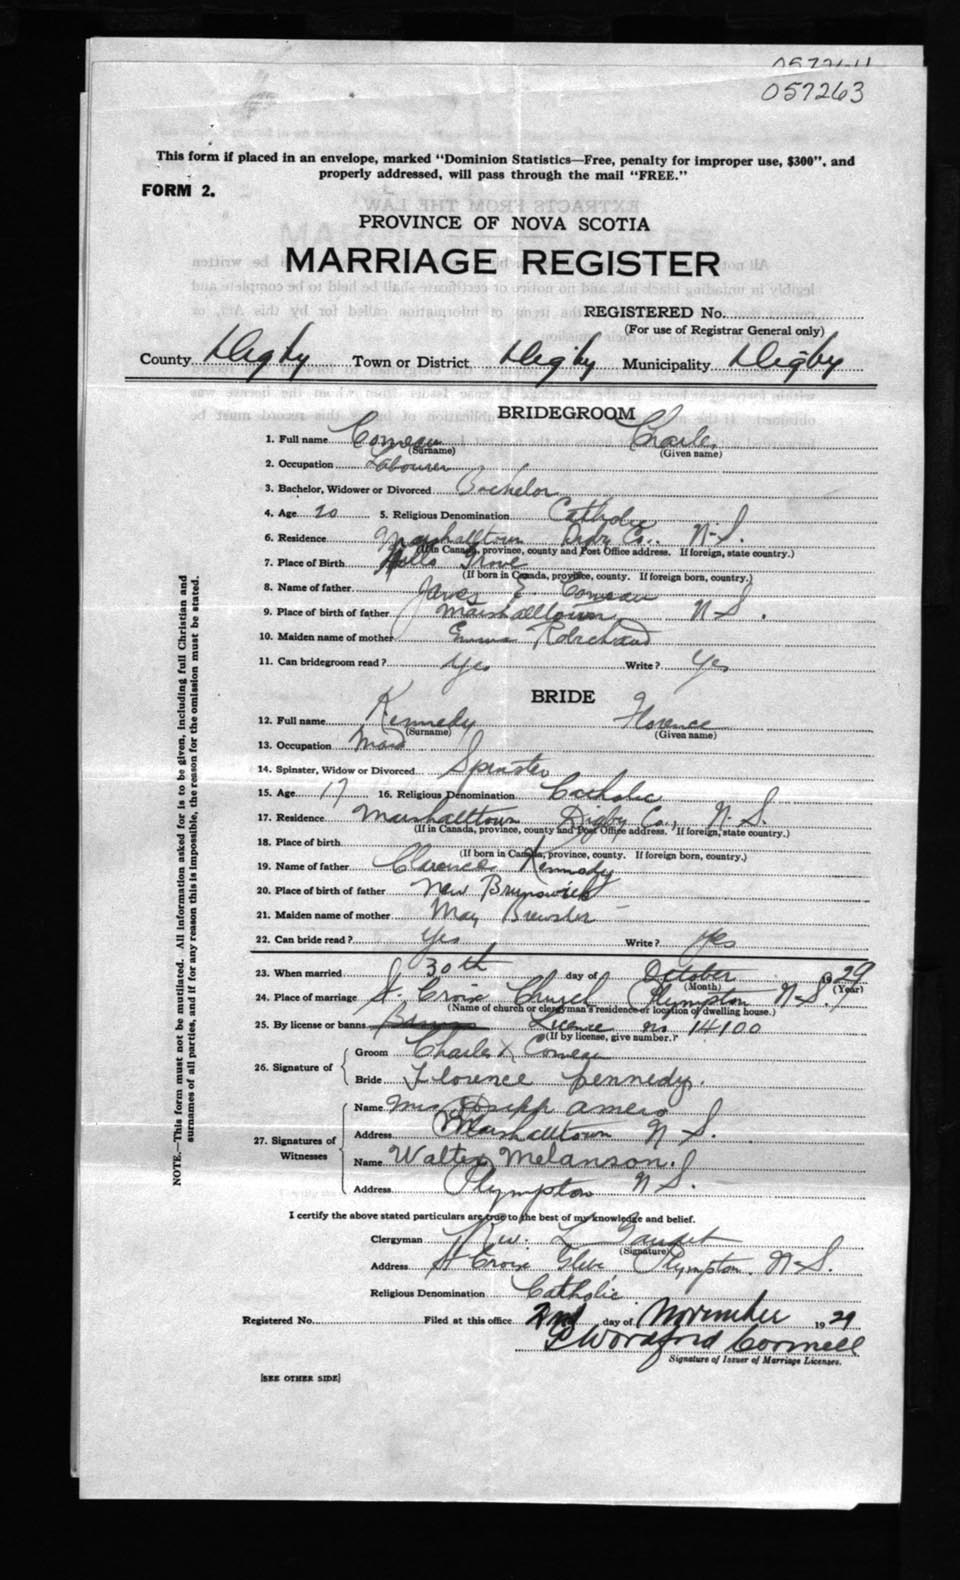 057264
057263
This form if placed in an envelope, marked "Dominion Statistics—Free, penalty for improper use, $300", and
properly addressed, will pass through the mail "FREE."
FORM 2.
PROVINCE OF NOVA SCOTIA
MARRIAGE REGISTER
REGISTERED No.
(For use of Registrar General only)
County Digby Town or District Digby Municipality Digby
BRIDEGROOM
1. Full name Comeau Charles
(Surname) (Given name)
2. Occupation Labourer
3. Bachelor, Widower or Divorced Bachelor
4. Age 20 5. Religious Denomination Catholic
6. Residence Marshalltown Digby Co. N.S.
(If in Canada, province, county and Post Office address. If foreign, state country.)
7. Place of Birth Hills Grove
(If born in Canada, province, county. If foreign born, country.)
8. Name of father James E. Comeau
9. Place of birth of father Marshalltown N.S.
10. Maiden name of mother Emma Robichaud
11. Can bridegroom read? Yes Write? Yes
BRIDE
12. Full name Kennedy Florence
(Surname) (Given name)
13. Occupation Maid
14. Spinster, Widow or Divorced Spinster
15. Age 17 16. Religious Denomination Catholic
17. Residence Marshalltown Digby Co., N.S.
(If in Canada, province, county and Post Office address. If foreign, state country.)
18. Place of birth
(If born in Canada, province, county. If foreign born, country.)
19. Name of father Clarence Kennedy
20. Place of birth of father New Brunswick
21. Maiden name of mother May Brewster
22. Can bride read? Yes Write? Yes
23. When married 30th day of October 1929
(Month) (Year)
24. Place of marriage St. Croix Church Plympton N.S.
(Name of church or clergyman's residence or location of dwelling house.)
25. By license or banns Banns License no 14100
(If by license, give number.)
26. Signature of
Groom Charles Comeau
Bride Florence Kennedy.
27. Signatures of Witnesses
Name Mrs Joseph Amero
Address Marshalltown N.S.
Name Walter Melanson.
Address Plympton N.S.
I certify the above stated particulars are true to the best of my knowledge and belief.
Clergyman Rev. L. Gaudet
(Signature)
Address St Croix Glebe, Plympton. N.S.
Religious Denomination Catholic
Registered No. Filed at this office 2nd day of November 1929
Wordford Cornell
Signature of Issuer of Marriage Licenses.
[SEE OTHER SIDE]
NOTE.—This form must not be mutilated. All information asked for is to be given, including full Christian and
surnames of all parties, and if for any reason this is impossible, the reason for the omission must be stated.